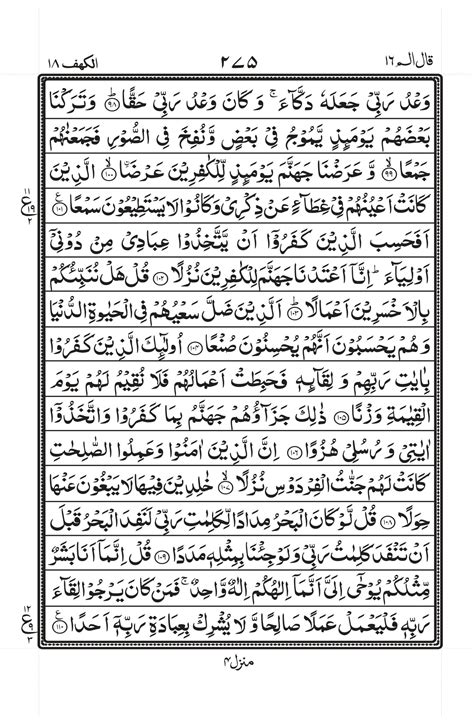 قال الم ١٦ ٢٧٥ الكهف ١٨
وَعْدُ رَبِّيْ جَعَلَهٗ دَكَّآءَ ۚ وَ كَانَ وَعْدُ رَبِّيْ حَقًّا ؕ ﴿۹۸﴾ وَ تَرَكْنَا
بَعْضَهُمْ يَوْمَىِٕذٍ يَّمُوْجُ فِيْ بَعْضٍ وَّ نُفِخَ فِي الصُّوْرِ فَجَمَعْنٰهُمْ
جَمْعًا ۙ﴿۹۹﴾ وَّ عَرَضْنَا جَهَنَّمَ يَوْمَىِٕذٍ لِّلْكٰفِرِيْنَ عَرْضَا ۙ﴿۱۰۰﴾ الَّذِيْنَ
كَانَتْ اَعْيُنُهُمْ فِيْ غِطَآءٍ عَنْ ذِكْرِيْ وَ كَانُوْا لَا يَسْتَطِيْعُوْنَ سَمْعًا ﴿۱۰۱﴾ ع
اَفَحَسِبَ الَّذِيْنَ كَفَرُوْۤا اَنْ يَّتَّخِذُوْا عِبَادِيْ مِنْ دُوْنِيْۤ
اَوْلِيَآءَ ؕ اِنَّاۤ اَعْتَدْنَا جَهَنَّمَ لِلْكٰفِرِيْنَ نُزُلًا ﴿۱۰۲﴾ قُلْ هَلْ نُنَبِّئُكُمْ
بِالْاَخْسَرِيْنَ اَعْمَالًا ؕ﴿۱۰۳﴾ اَلَّذِيْنَ ضَلَّ سَعْيُهُمْ فِي الْحَيٰوةِ الدُّنْيَا
وَ هُمْ يَحْسَبُوْنَ اَنَّهُمْ يُحْسِنُوْنَ صُنْعًا ﴿۱۰۴﴾ اُولٰٓىِٕكَ الَّذِيْنَ كَفَرُوْا
بِاٰيٰتِ رَبِّهِمْ وَ لِقَآىِٕهٖ فَحَبِطَتْ اَعْمَالُهُمْ فَلَا نُقِيْمُ لَهُمْ يَوْمَ
الْقِيٰمَةِ وَزْنًا ﴿۱۰۵﴾ ذٰلِكَ جَزَآؤُهُمْ جَهَنَّمُ بِمَا كَفَرُوْا وَ اتَّخَذُوْۤا
اٰيٰتِيْ وَ رُسُلِيْ هُزُوًا ﴿۱۰۶﴾ اِنَّ الَّذِيْنَ اٰمَنُوْا وَ عَمِلُوا الصّٰلِحٰتِ
كَانَتْ لَهُمْ جَنّٰتُ الْفِرْدَوْسِ نُزُلًا ۙ﴿۱۰۷﴾ خٰلِدِيْنَ فِيْهَا لَا يَبْغُوْنَ عَنْهَا
حِوَلًا ﴿۱۰۸﴾ قُلْ لَّوْ كَانَ الْبَحْرُ مِدَادًا لِّكَلِمٰتِ رَبِّيْ لَنَفِدَ الْبَحْرُ قَبْلَ
اَنْ تَنْفَدَ كَلِمٰتُ رَبِّيْ وَ لَوْ جِئْنَا بِمِثْلِهٖ مَدَدًا ﴿۱۰۹﴾ قُلْ اِنَّمَاۤ اَنَا بَشَرٌ
مِّثْلُكُمْ يُوْحٰۤى اِلَيَّ اَنَّمَاۤ اِلٰهُكُمْ اِلٰهٌ وَّاحِدٌ ۚ فَمَنْ كَانَ يَرْجُوْا لِقَآءَ
رَبِّهٖ فَلْيَعْمَلْ عَمَلًا صَالِحًا وَّ لَا يُشْرِكْ بِعِبَادَةِ رَبِّهٖۤ اَحَدًا ﴿۱۱۰﴾ ع
١١ ع ١٩ ٢
١٢ ع ٩ ٣
منزل ٤